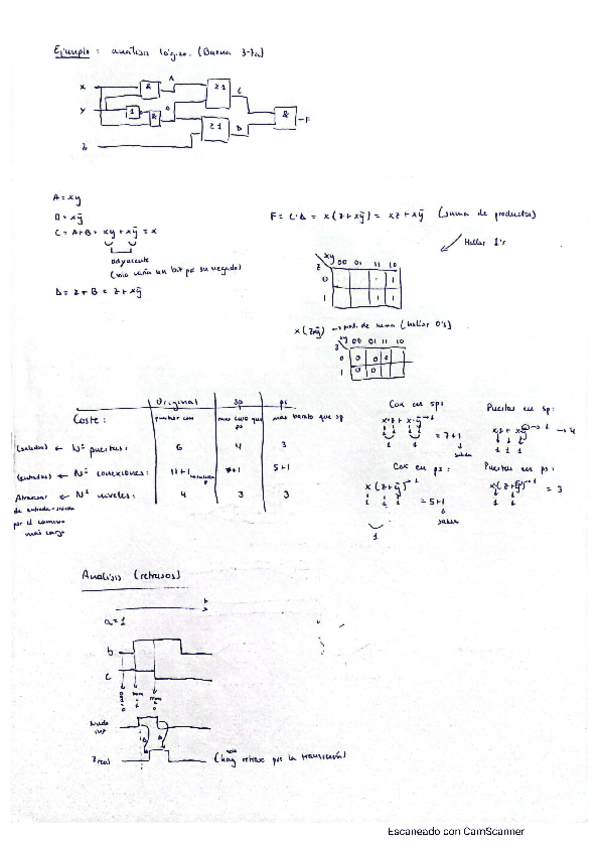 Ejemplo: análisis lógico. (Buena 3-7a)
x & A ≥1 C
y 1 & B & F
z ≥1 D
A = xy
B = xȳ
C = A+B = xy + xȳ = x
adyacente
(solo varía un bit por su negado)
D = z+B = z+xȳ
F = C·D = x(z+xȳ) = xz + xȳ (suma de productos)
Hallar 1's
xy 00 01 11 10
z 0 1
1 1 1
(hallar 0's)
xy 00 01 11 10
0 0 0 0
1 0 0
Original sp ps
Coste: más barato que sp
(salidas) ← Nº puertas: 6 4 3
(entradas) ← Nº conexiones: 7+1 5+1
Atravesar ← Nº niveles: 4 3 3
de entrada-salida
por el camino
más largo
Cox en sp:
x·z + x·ȳ = 7+1
salida
Puertas en sp:
xz + xȳ → 4
1 1 1
Cox en ps:
x(z+ȳ) = 5+1
1 1 1
salida
1
Puertas en ps:
x(z+ȳ) = 3
1 1
Análisis (retrasos)
t
a=1
b
c
z real
(hay retraso por la transición)
Escaneado con CamScanner